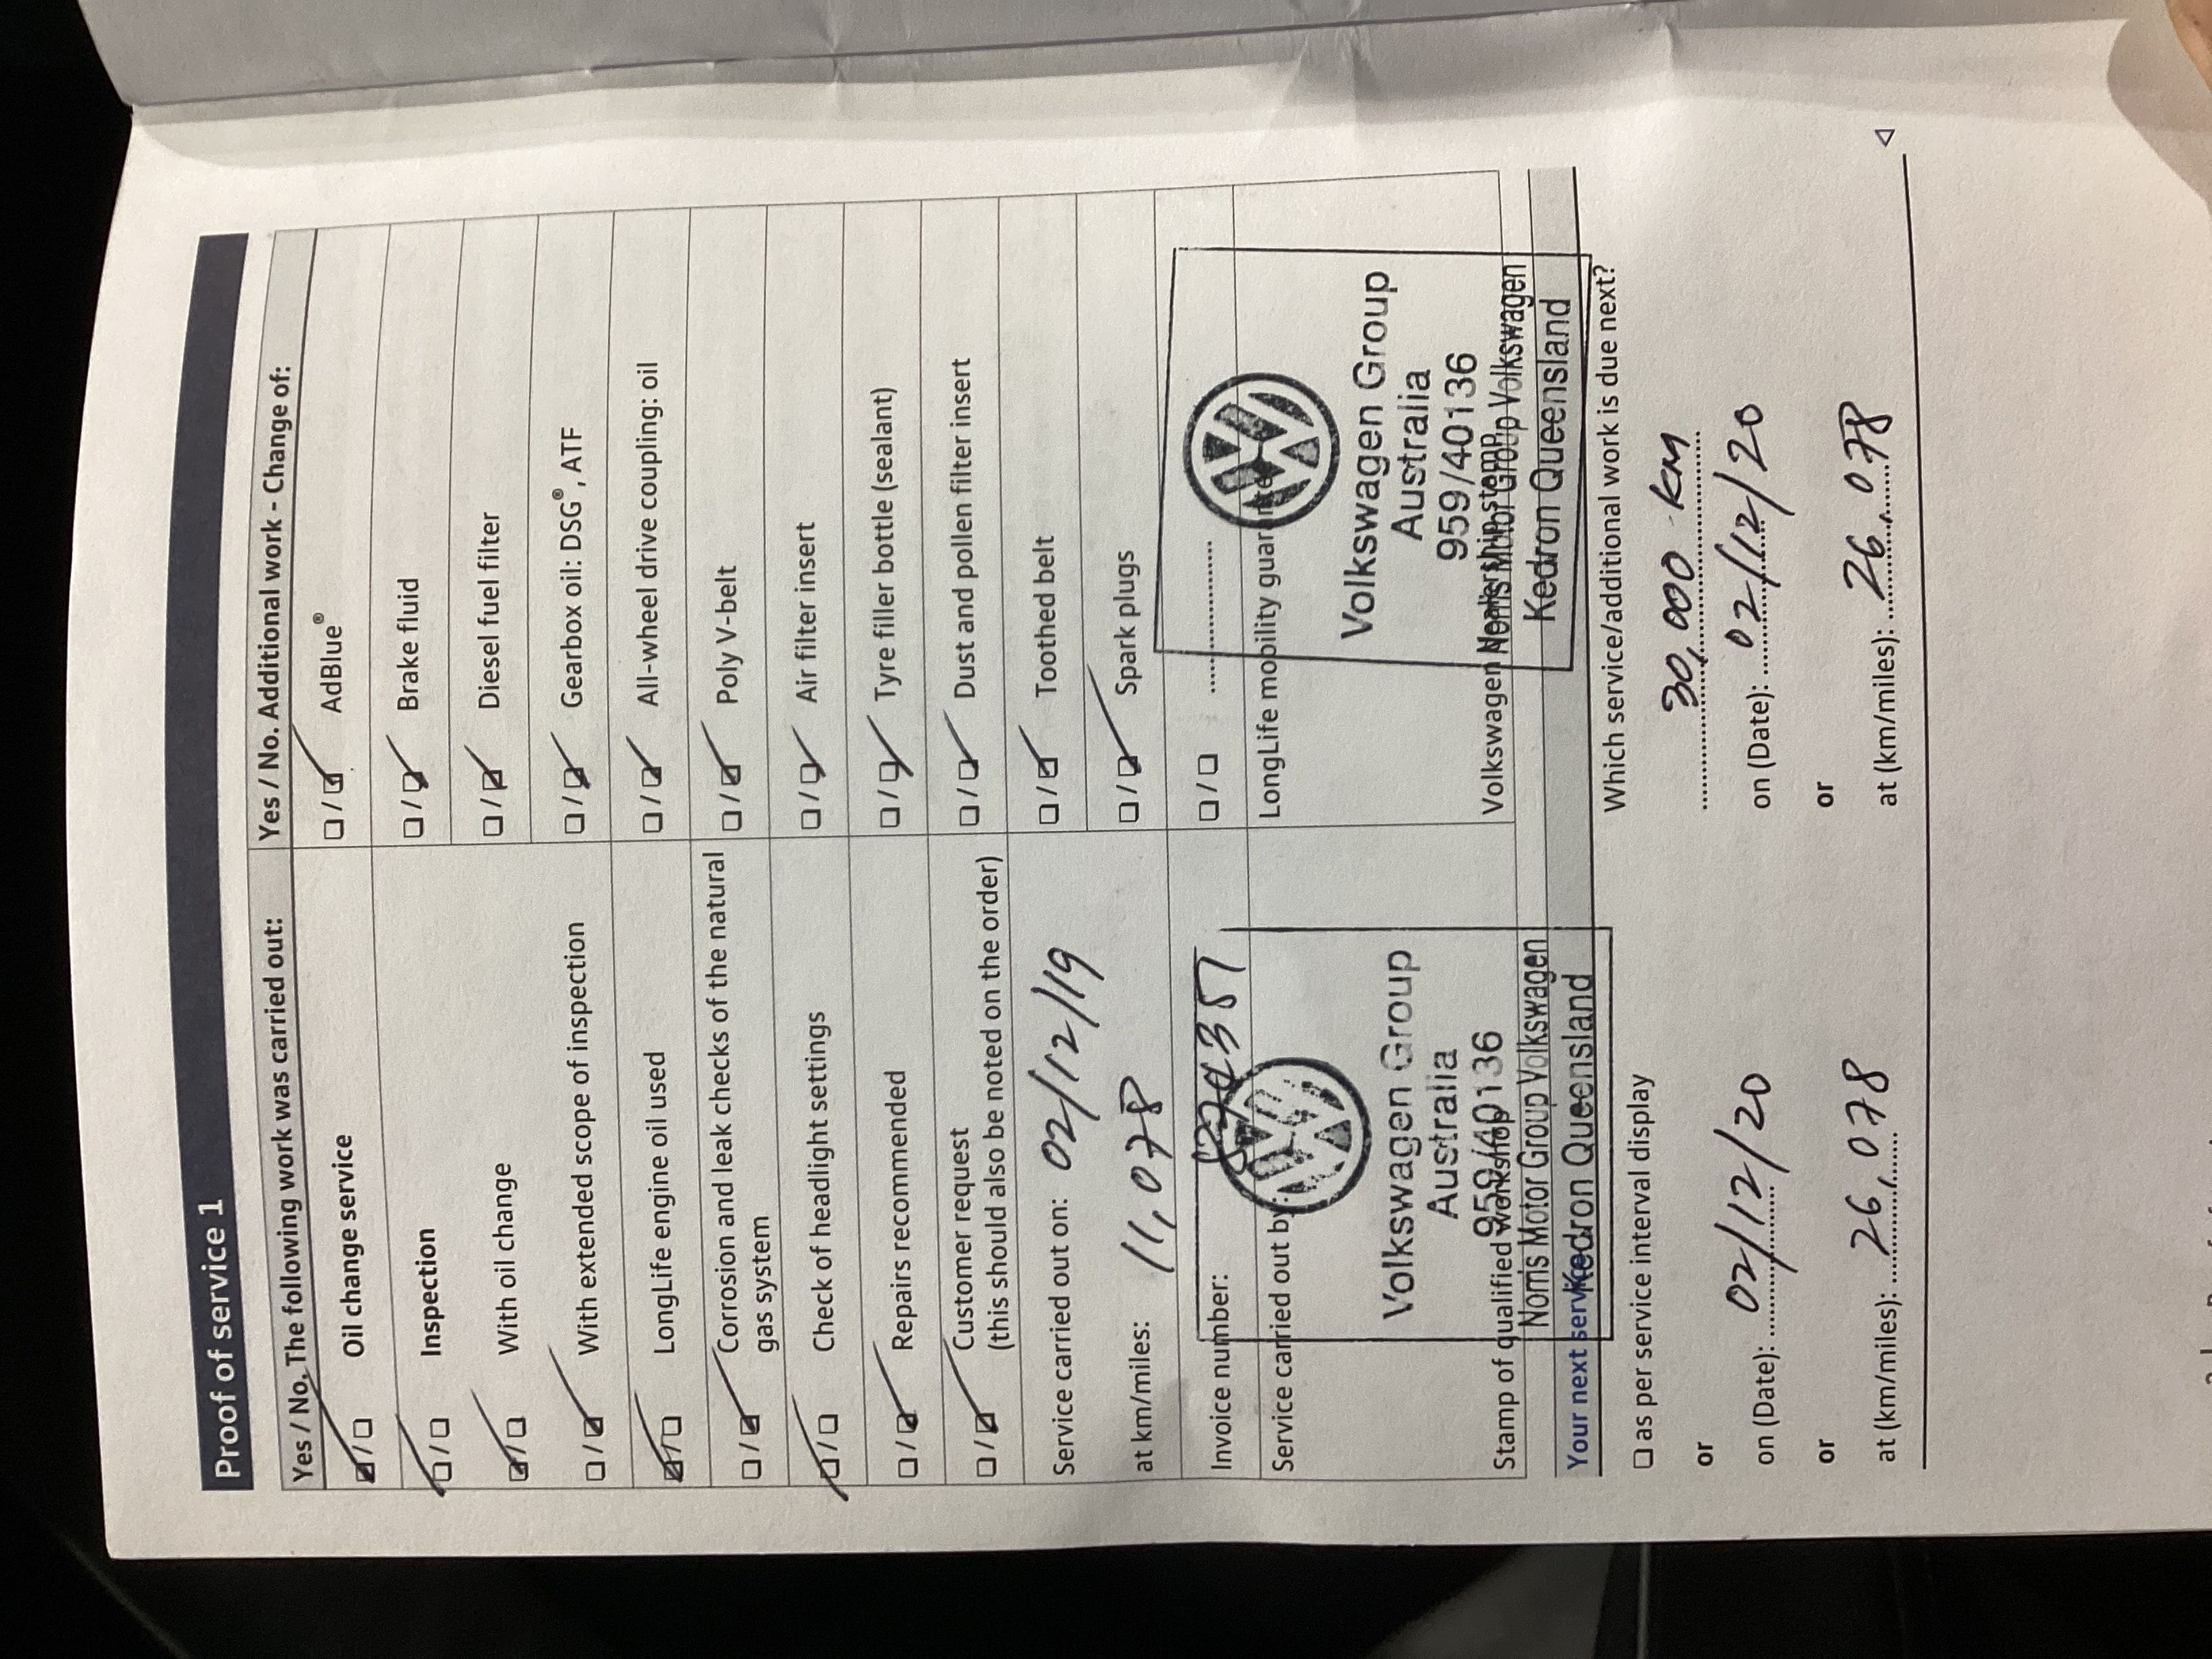 Proof of service 1
Yes / No. The following work was carried out:
Oil change service
Inspection
With oil change
With extended scope of inspection
LongLife engine oil used
Corrosion and leak checks of the natural
gas system
Check of headlight settings
Repairs recommended
Customer request
(this should also be noted on the order)
Service carried out on: 02/12/19
at km/miles: 11,078
Invoice number:
Service carried out by:
Volkswagen Group
Australia
959/40136
Stamp of qualified workshop
Norris Motor Group Volkswagen
Kedron Queensland
Yes / No. Additional work - Change of:
AdBlue®
Brake fluid
Diesel fuel filter
Gearbox oil: DSG®, ATF
All-wheel drive coupling: oil
Poly V-belt
Air filter insert
Tyre filler bottle (sealant)
Dust and pollen filter insert
Toothed belt
Spark plugs
LongLife mobility guarantee
Volkswagen Group
Australia
959/40136
Volkswagen dealership stamp
Norris Motor Group Volkswagen
Kedron Queensland
Your next service
as per service interval display
or
on (Date): 02/12/20
or
at (km/miles): 26,078
Which service/additional work is due next?
30,000 km
on (Date): 02/12/20
or
at (km/miles): 26,078